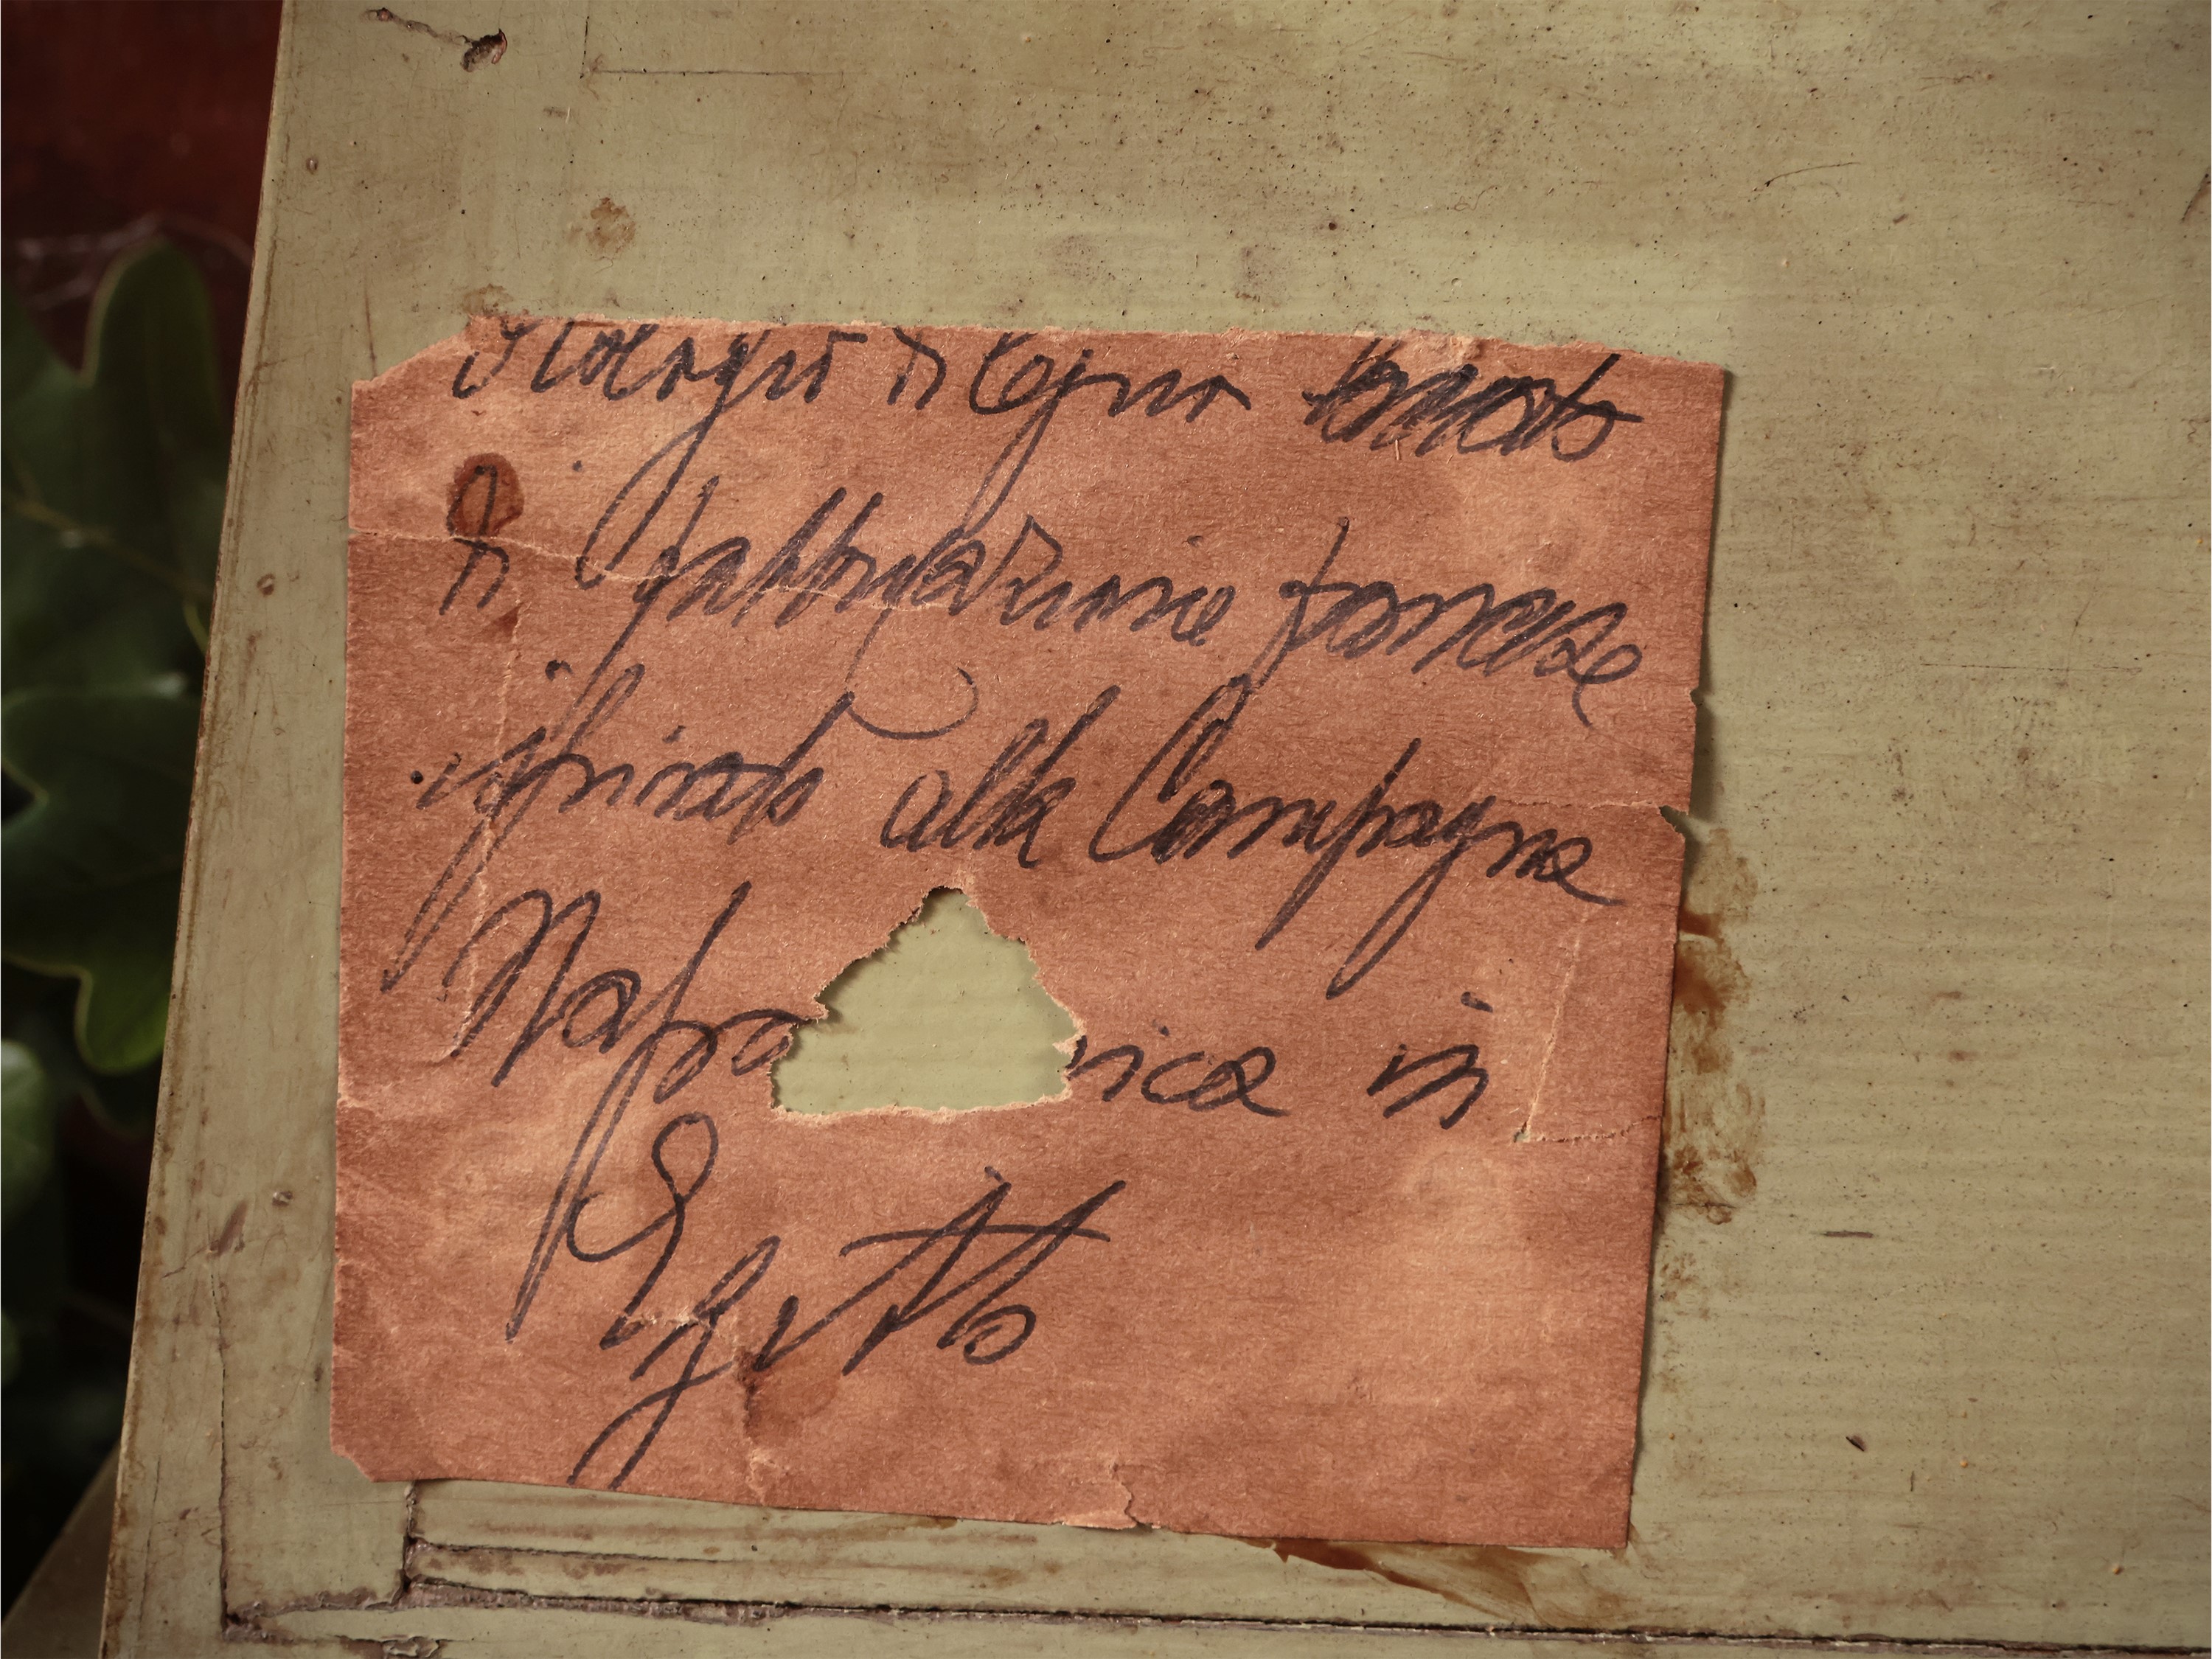 Orologio di legno
di fabbricazione francese
ispirato alla Campagna
Napo nica in
Egitto